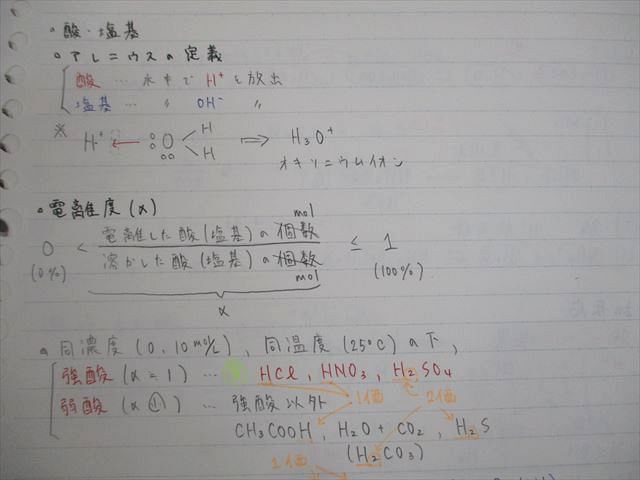 。酸・塩基
。アレニウスの定義
酸 … 水中で H⁺ を放出
塩基 … 〃 OH⁻ 〃
※ H⁺ ← O H H ⇒ H₃O⁺
オキソニウムイオン
。電離度 (α)
mol
0 < 電離した酸(塩基)の個数 / 溶かした酸(塩基)の個数 ≦ 1
(0%) mol (100%)
α
。同濃度 (0.10 mol/L), 同温度 (25℃) の下,
強酸 (α = 1) … HCl, HNO₃, H₂SO₄
1価 2価
弱酸 (α ≪ 1) … 強酸以外
CH₃COOH, H₂O + CO₂, H₂S
(H₂CO₃)
2価